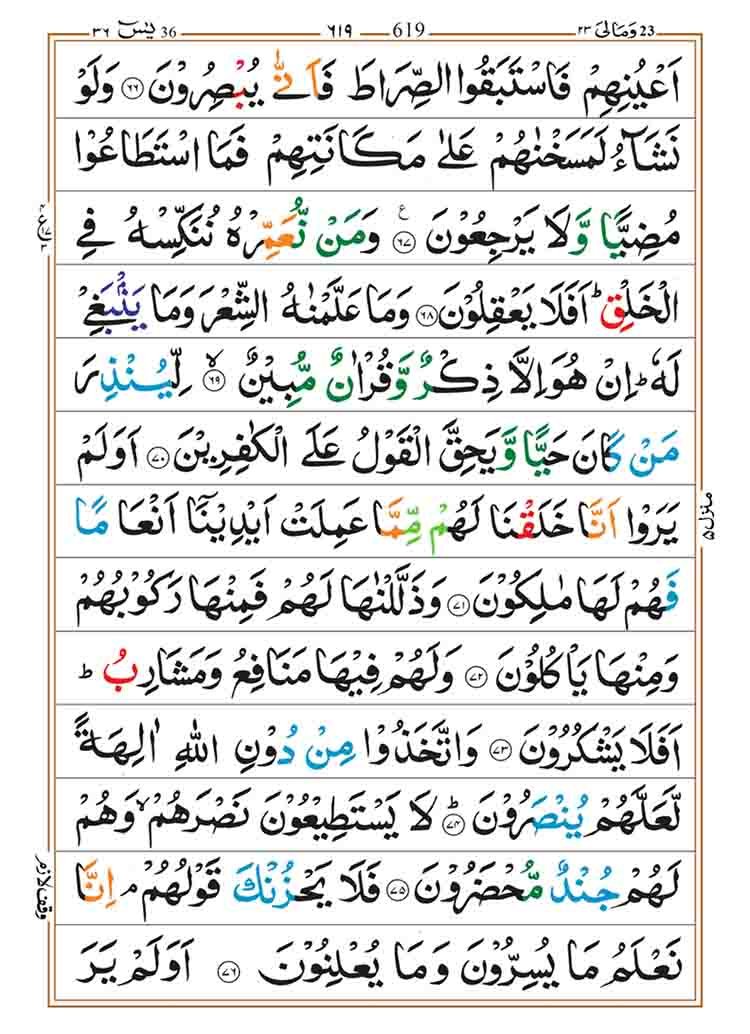 ٣٦ يٰسٓ 36 ٦١٩ 619 ٢٣ وَمَالِیَ 23
اَعْیُنِهِمْ فَاسْتَبَقُوا الصِّرَاطَ فَاَنّٰی یُبْصِرُوْنَ ﴿۶۶﴾ وَلَوْ
نَشَآءُ لَمَسَخْنٰهُمْ عَلٰی مَكَانَتِهِمْ فَمَا اسْتَطَاعُوْا
مُضِیًّا وَّلَا یَرْجِعُوْنَ ﴿۶۷﴾ ع وَمَنْ نُّعَمِّرْهُ نُنَكِّسْهُ فِی
الْخَلْقِ ؕ اَفَلَا یَعْقِلُوْنَ ﴿۶۸﴾ وَمَا عَلَّمْنٰهُ الشِّعْرَ وَمَا یَنْۢبَغِیْ
لَهٗ ؕ اِنْ هُوَ اِلَّا ذِكْرٌ وَّقُرْاٰنٌ مُّبِیْنٌ ﴿۶۹﴾ ۙ لِّیُنْذِرَ
مَنْ كَانَ حَیًّا وَّیَحِقَّ الْقَوْلُ عَلَی الْكٰفِرِیْنَ ﴿۷۰﴾ اَوَلَمْ
یَرَوْا اَنَّا خَلَقْنَا لَهُمْ مِّمَّا عَمِلَتْ اَیْدِیْنَاۤ اَنْعَامًا
فَهُمْ لَهَا مٰلِكُوْنَ ﴿۷۱﴾ وَذَلَّلْنٰهَا لَهُمْ فَمِنْهَا رَكُوْبُهُمْ
وَمِنْهَا یَاْكُلُوْنَ ﴿۷۲﴾ وَلَهُمْ فِیْهَا مَنَافِعُ وَمَشَارِبُ ؕ
اَفَلَا یَشْكُرُوْنَ ﴿۷۳﴾ وَاتَّخَذُوْا مِنْ دُوْنِ اللّٰهِ اٰلِهَةً
لَّعَلَّهُمْ یُنْصَرُوْنَ ﴿۷۴﴾ ؕ لَا یَسْتَطِیْعُوْنَ نَصْرَهُمْ ۙ وَهُمْ
لَهُمْ جُنْدٌ مُّحْضَرُوْنَ ﴿۷۵﴾ فَلَا یَحْزُنْكَ قَوْلُهُمْ ۘ اِنَّا
نَعْلَمُ مَا یُسِرُّوْنَ وَمَا یُعْلِنُوْنَ ﴿۷۶﴾ اَوَلَمْ یَرَ
منزل ۵
وقف لازم